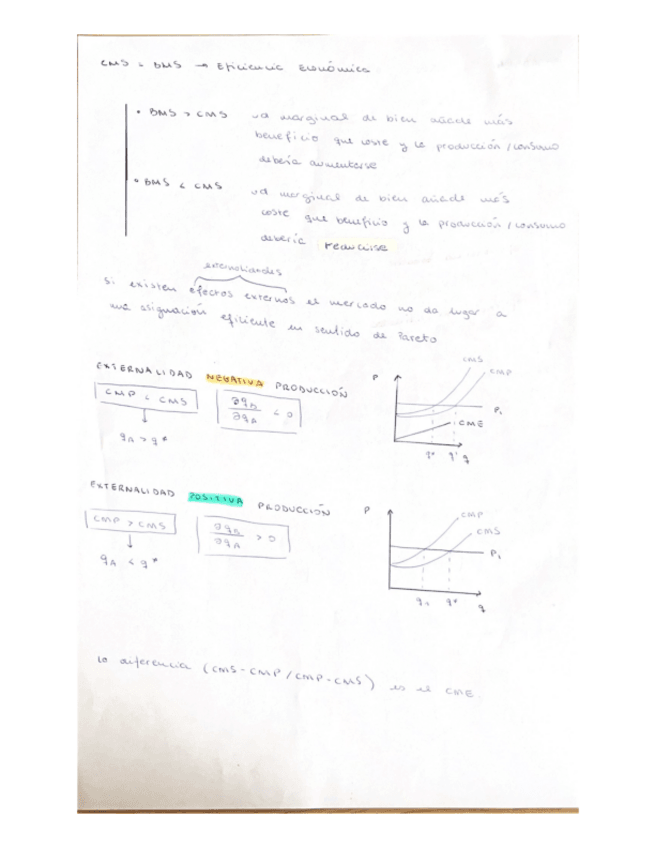 CMS = BMS → Eficiencia económica
• BMS > CMS ud marginal de bien añade más
beneficio que coste y la producción/consumo
debería aumentarse
• BMS < CMS ud marginal de bien añade más
coste que beneficio y la producción/consumo
debería reducirse
externalidades
Si existen efectos externos el mercado no da lugar a
una asignación eficiente en sentido de Pareto
EXTERNALIDAD NEGATIVA PRODUCCIÓN
CMP < CMS
∂qB/∂qA < 0
qA > q*
P
CMS
CMP
P1
CME
q* q1 q
EXTERNALIDAD POSITIVA PRODUCCIÓN
CMP > CMS
∂qB/∂qA > 0
qA < q*
P
CMP
CMS
P1
q1 q* q
la diferencia (CMS-CMP/CMP-CMS) es el CME.